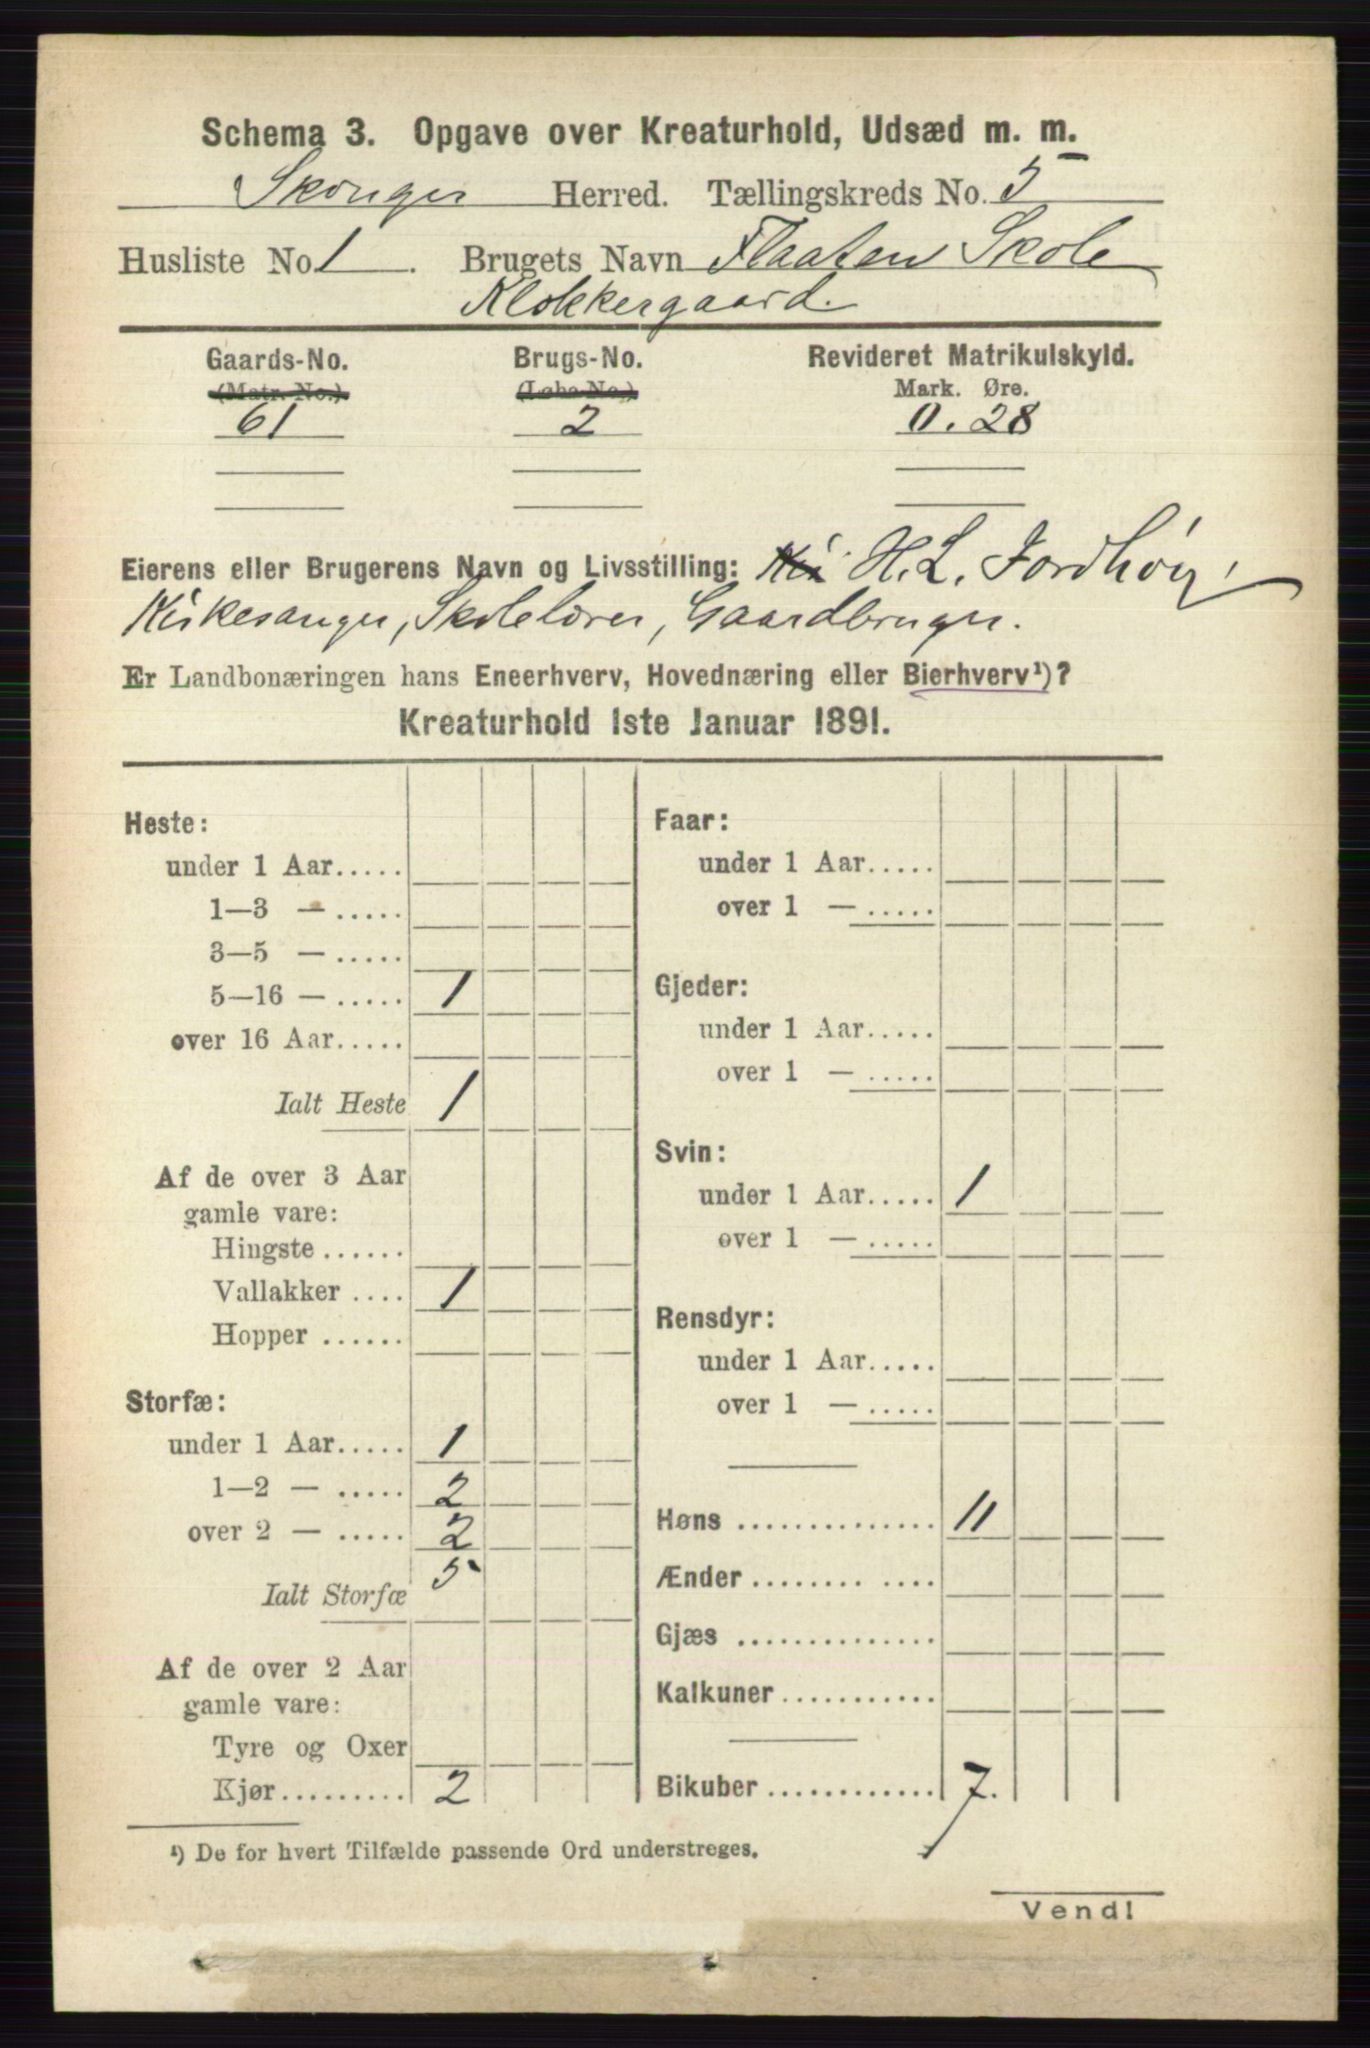 Schema 3. Opgave over Kreaturhold, Udsæd m. m.
Skonger Herred. Tællingskreds No. 5
Husliste No 1 . Brugets Navn Flaaten Skole
Klokkergaard.
Gaards-No. Brugs-No. Revideret Matrikulskyld.
(Matr. No.) (Løbe No.) Mark. Øre.
61 2 0. 28
Eierens eller Brugerens Navn og Livsstilling: H. L. Jordhøy,
Kirkesanger, Skolelærer, Gaardbruger.
Er Landbonæringen hans Eneerhverv, Hovednæring eller Bierhverv¹)?
Kreaturhold 1ste Januar 1891.
Heste:
under 1 Aar.....
1—3 — .....
3—5 — .....
5—16 — ..... 1
over 16 Aar.....
Ialt Heste 1
Af de over 3 Aar
gamle vare:
Hingste ......
Vallakker .... 1
Hopper ......
Storfæ:
under 1 Aar..... 1
1—2 — ..... 2
over 2 — ..... 2
Ialt Storfæ 5
Af de over 2 Aar
gamle vare:
Tyre og Oxer
Kjør......... 2
Faar:
under 1 Aar.....
over 1 — .....
Gjeder:
under 1 Aar.....
over 1 — .....
Svin:
under 1 Aar..... 1
over 1 — .....
Rensdyr:
under 1 Aar.....
over 1 — .....
Høns .............. 11
Ænder........ ....
Gjæs ..............
Kalkuner...........
Bikuber ............. 7.
¹) De for hvert Tilfælde passende Ord understreges.
Vend!